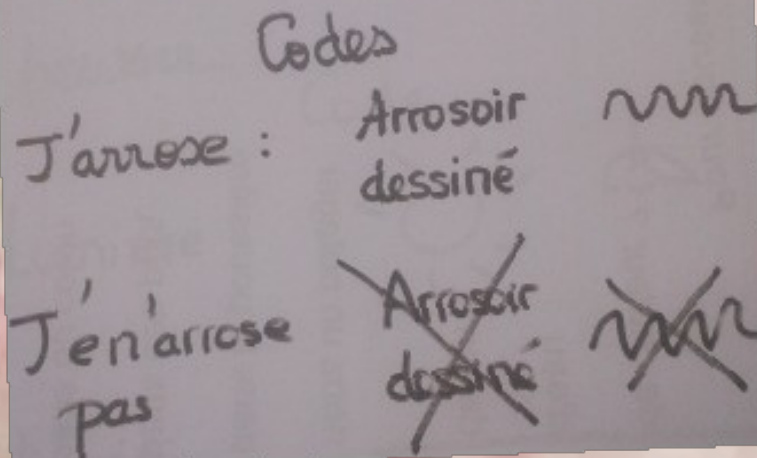 Codes
J'arrose : Arrosoir
dessiné
J'en'arrose Arrosoir
pas dessiné